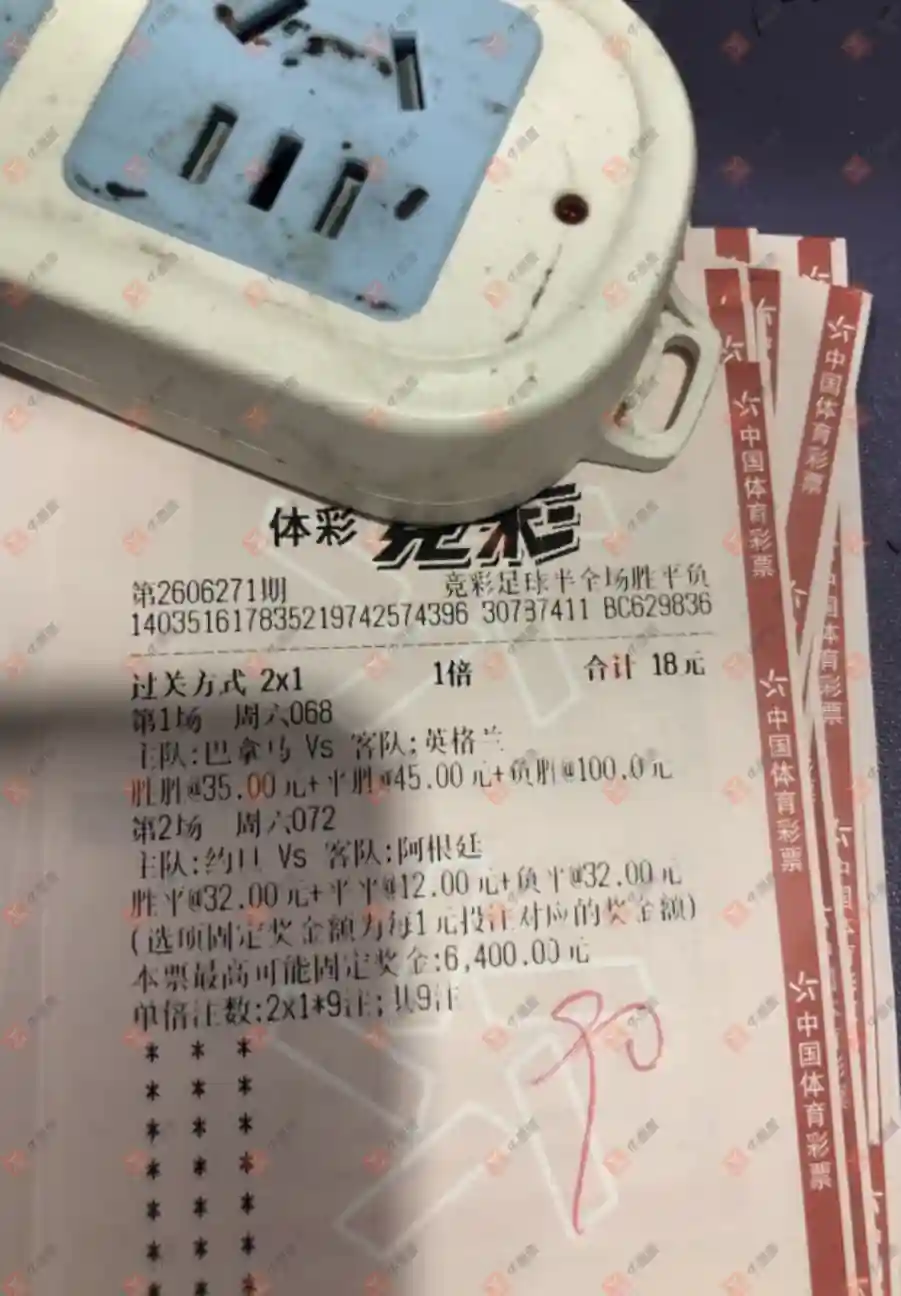 体彩 竞彩
第2606271期 竞彩足球半全场胜平负
140351617835219742574396 30787411 BC629836
过关方式 2x1 1倍 合计 18元
第1场 周六068
主队:巴拿马 Vs 客队:英格兰
胜胜@35.00元+平胜@45.00元+负胜@100.0元
第2场 周六072
主队:约旦 Vs 客队:阿根廷
胜平@32.00元+平平@12.00元+负平@32.00元
(选项固定奖金额为每1元投注对应的奖金额)
本票最高可能固定奖金:6,400.00元
单倍注数:2x1*9注;共9注
* * *
* * *
* * *
* * *
* * *
* * *
* * *
90
中国体育彩票
中国体育彩票
中国体育彩票
中国体育彩票